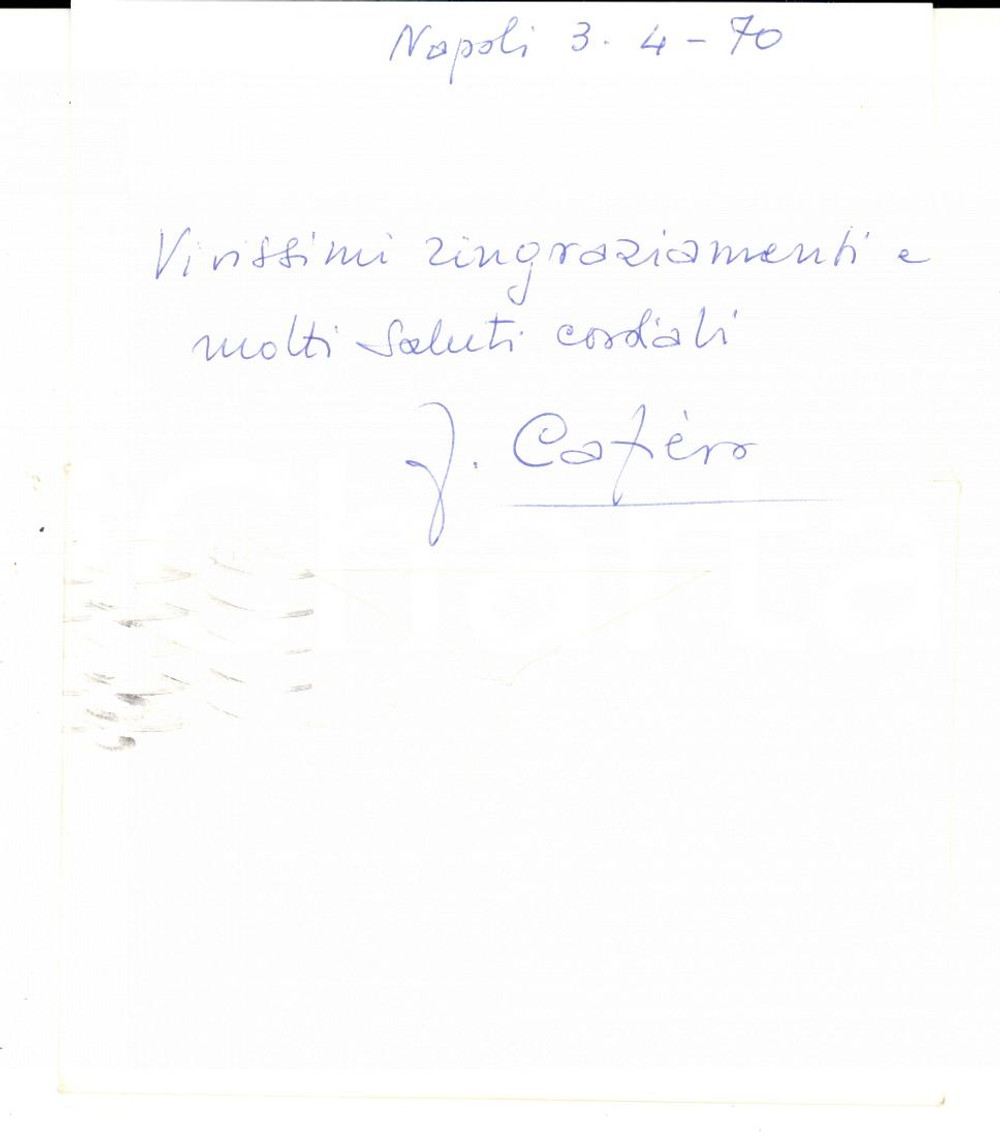 Napoli 3. 4 - 70
Vivissimi ringraziamenti e
molti saluti cordiali
J. Cafiero